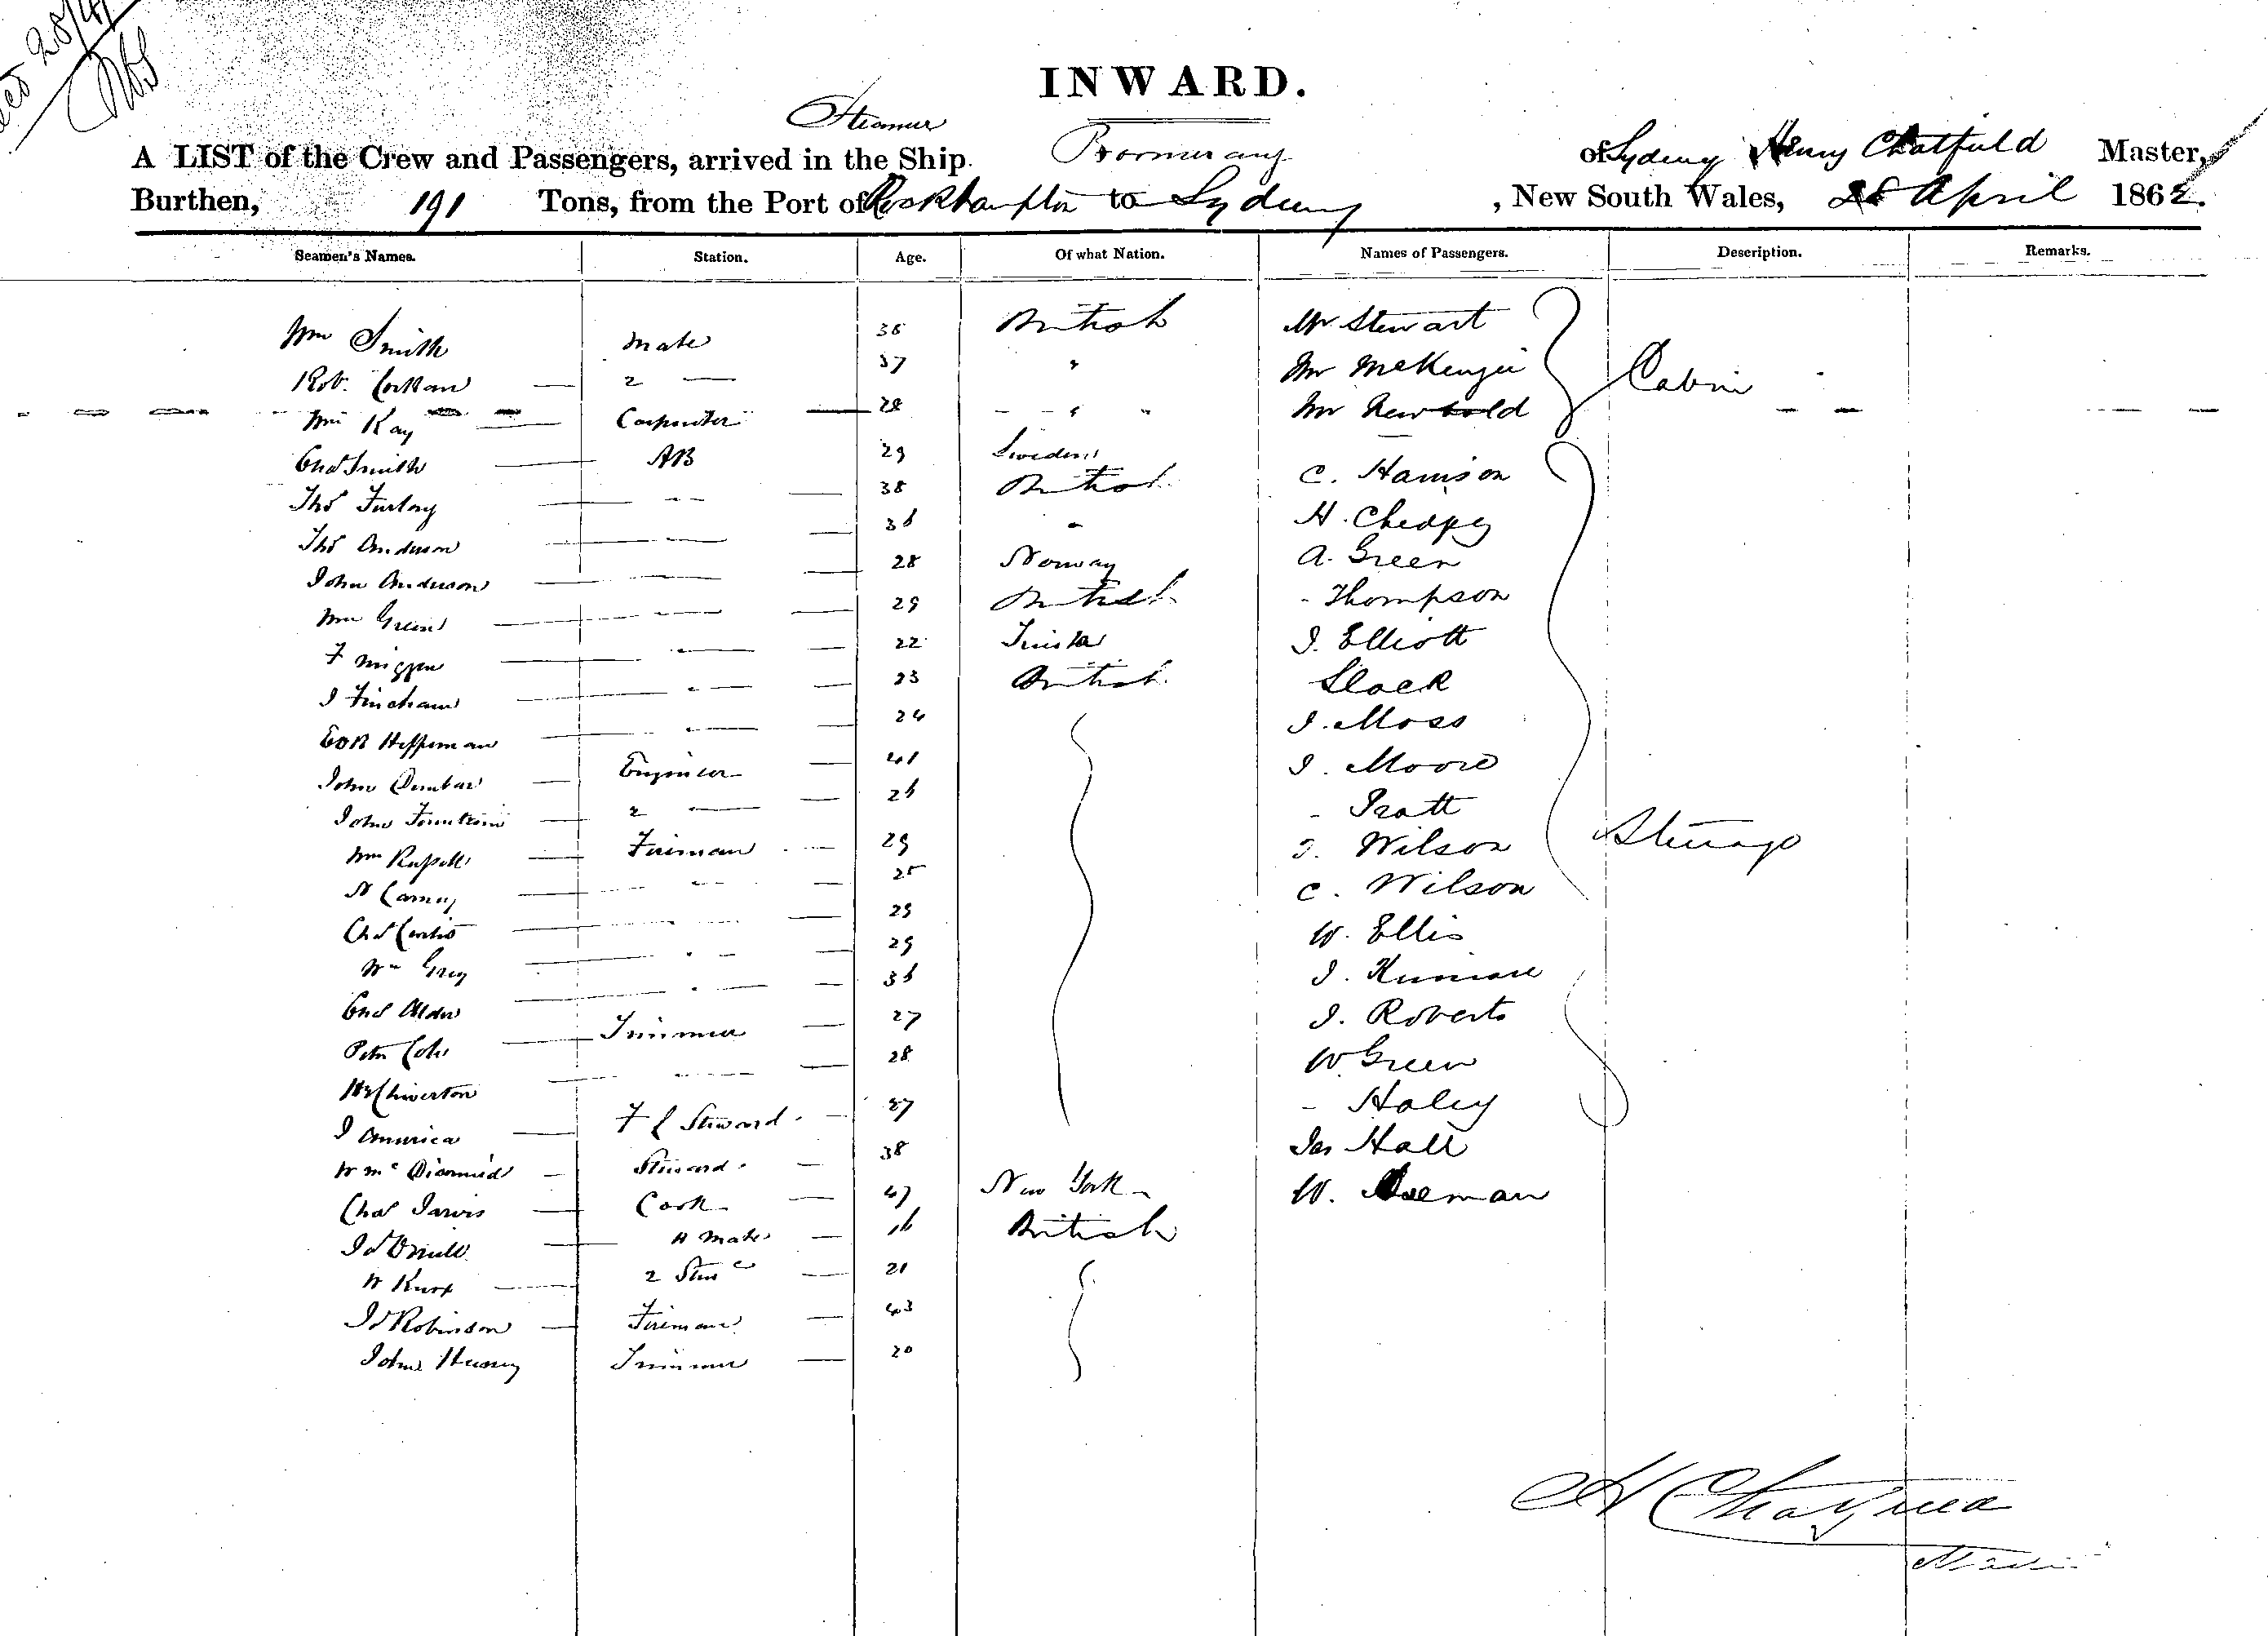 28/4
INWARD.
Steamer
A LIST of the Crew and Passengers, arrived in the Ship Boomerang of Sydney Henry Chatfield Master,
Burthen, 191 Tons, from the Port of Rockhampton to Sydney, New South Wales, 28 April 1862.
Seamen's Names. Station. Age. Of what Nation. Names of Passengers. Description. Remarks.
Wm Smith Mate 38 British Mr Stewart
Rob. 2 — 37 " Mr McKenzie Cabin
Wm Kay Carpenter 28 " " Mr Newbold
Chas Smith AB 29 Sweden C. Harrison
Thos Furlong " 38 British H.
Thos Anderson " 36 " A. Green
John Anderson " 28 Norway - Thompson
Wm Green " 29 British J. Elliott
F " 22 Slack
J Fincham " 23 British J. Moss
Heffernan " 24 J. Moore
John Dunbar Engineer 41 - Pratt
John 2 — 26 J. Wilson Steerage
Wm Russell Fireman 29 C. Wilson
N Carney " 25 W. Ellis
Chs Curtis " 25 J.
Wm Grey " 29 J. Roberts
Alder " 36 W. Green
Peter Cole Trimmer 27 - Haley
Hy Chiverton " 28 Jas Hall
J America F C Steward 27 W.
W McDiarmid Steward 38
Chas Jarvis Cook 47 New York
Js O'Neill " Mate 16 British
W Knox 2 Stew 21
Js Robinson Fireman 43
John Hussey Trimmer 20
H Chatfield
Master